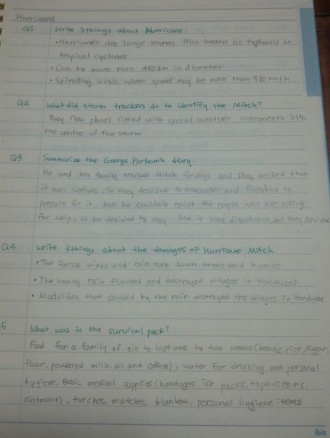 Hurricane
Q1 Write 3 things about Hurricane.
• Hurricanes are large storms. Also known as typhoons or
tropical cyclones
• Can be more than 480 km in diameter
• Spiralling winds where speed may be more than 320 km/h
Q2 What did storm trackers do to identify the Mitch?
They flew planes fitted with special weather instruments into
the centre of the storm
Q3 Summarise the George Parham's diary.
He and his family tracked Mitch Sunday and they decided that
it was serious. So they decided to evacuate and
prepare for it. But he couldn't resist the people who are calling
for help, so he decided to stay. And it was disastrous, but they survived
Q4 Write 3 things about the damages of Hurricane Mitch.
• The fierce winds and rain tore down trees and homes
• The heavy rain flooded and destroyed villages in Honduras.
• Mudslides that caused by the rain destroyed the villages in Honduras
5 What was in the survival pack?
Food for a family of six to last one to two weeks (beans, rice, sugar,
flour, powdered milk, oil and coffee), water for drinking and personal
hygiene. Basic medical supplies (bandages, ice packs, tape, creams,
ointment), torches, matches, blanket, personal hygiene items